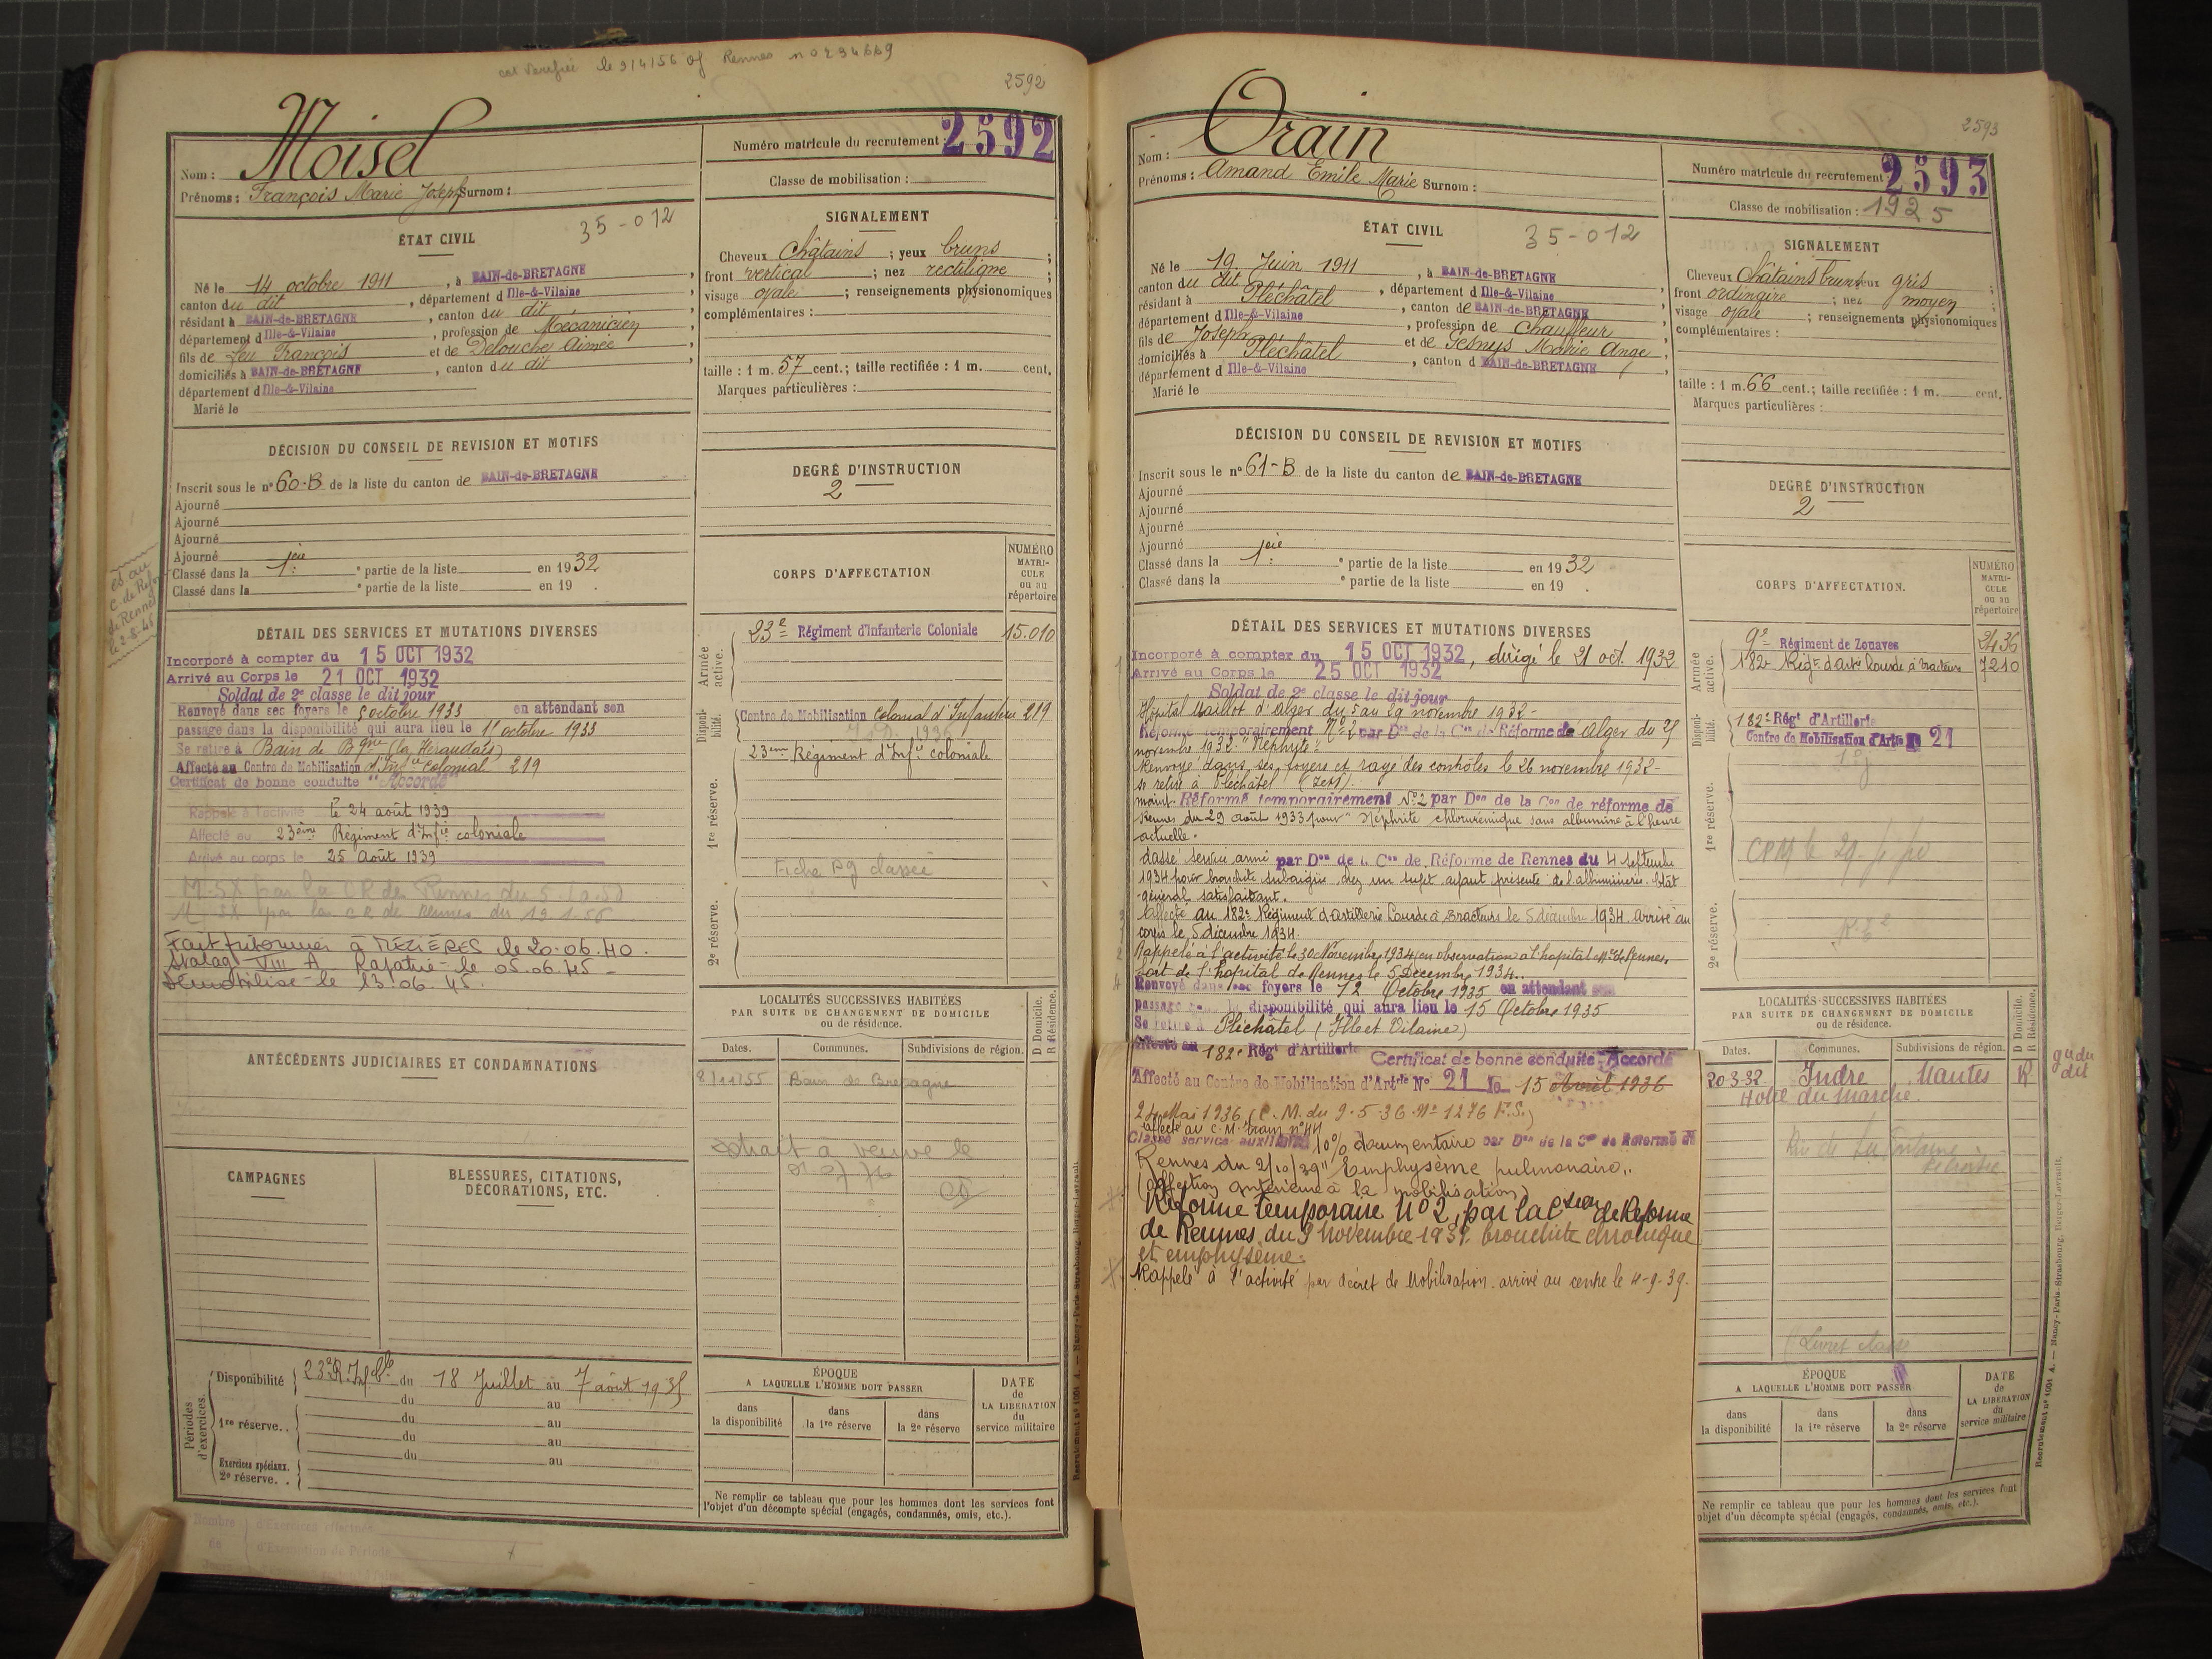 le 9/4/56 Rennes n0234669
2592
Nom : Moisel
Prénoms : François Marie Joseph Surnom :
Numéro matricule du recrutement : 2592
Classe de mobilisation :
ÉTAT CIVIL
35-012
Né le 14 octobre 1911, à BAIN-de-BRETAGNE,
canton du dit, département d Ille-&-Vilaine,
résidant à BAIN-de-BRETAGNE, canton du dit,
département d Ille-&-Vilaine, profession de Mécanicien,
fils de feu François et de Delouche Aimée,
domiciliés à BAIN-de-BRETAGNE, canton du dit,
département d Ille-&-Vilaine
Marié le
SIGNALEMENT
Cheveux châtains ; yeux bruns ;
front vertical ; nez rectiligne ;
visage ovale ; renseignements physionomiques
complémentaires :
taille : 1 m. 57 cent.; taille rectifiée : 1 m. cent.
Marques particulières :
DÉCISION DU CONSEIL DE REVISION ET MOTIFS
Inscrit sous le n° 60-B de la liste du canton de BAIN-de-BRETAGNE
Ajourné
Ajourné
Ajourné
Ajourné
Classé dans la 1ere ° partie de la liste en 1932
Classé dans la ° partie de la liste en 19 .
DEGRÉ D'INSTRUCTION
2
CORPS D'AFFECTATION
NUMÉRO MATRICULE ou au répertoire
Armée active.
23e Régiment d'Infanterie Coloniale 15.010
Disponibilité.
Centre de Mobilisation Colonial d'Infanterie 219
1re réserve.
23eme Régiment d'Infie coloniale
Fiche Pg classée
2e réserve.
DÉTAIL DES SERVICES ET MUTATIONS DIVERSES
Incorporé à compter du 15 OCT 1932
Arrivé au Corps le 21 OCT 1932
Soldat de 2e classe le dit jour
Renvoyé dans ses foyers le 5 octobre 1933 en attendant son
passage dans la disponibilité qui aura lieu le 1er octobre 1933
Se retire à Bain de Bgne
Affecté au Centre de Mobilisation d'Infie colonial 219
Certificat de bonne conduite "Accordé"
Rappelé à l'activité le 24 août 1939
Affecté au 23ème Régiment d'Infie coloniale
Arrivé au corps le 25 Août 1939
par la CR de Rennes du
par la CR de Rennes du 19.1.56
Fait prisonnier à MÉZIÈRES le 20.06.40.
Stalag VIII A. Rapatrié le 05.06.45 -
Démobilisé le 13.06.45.
ANTÉCÉDENTS JUDICIAIRES ET CONDAMNATIONS
LOCALITÉS SUCCESSIVES HABITÉES
PAR SUITE DE CHANGEMENT DE DOMICILE
ou de résidence.
D Domicile.
R Résidence.
Dates. Communes. Subdivisions de région.
8/11/55 Bain de Bretagne
extrait à veuve le
CAMPAGNES
BLESSURES, CITATIONS,
DÉCORATIONS, ETC.
Périodes d'exercices.
Disponibilité 23e R. Inf. Cle du 18 Juillet au 7 août 1935
du au
1re réserve.. du au
du au
Exercices spéciaux. du au
2e réserve. .
ÉPOQUE
A LAQUELLE L'HOMME DOIT PASSER
dans la disponibilité
dans la 1re réserve
dans la 2e réserve
DATE de LA LIBÉRATION du service militaire
Ne remplir ce tableau que pour les hommes dont les services font
l'objet d'un décompte spécial (engagés, condamnés, omis, etc.).
Nombre de d'Exercices effectués
d'Exemption de Période
Recrutement n° 1001 A. — Nancy-Paris-Strasbourg, Berger-Levrault.
2593
Nom : Orain
Prénoms : Amand Emile Marie Surnom :
Numéro matricule du recrutement : 2593
Classe de mobilisation : 1925
ÉTAT CIVIL
35-012
Né le 19 Juin 1911, à BAIN-de-BRETAGNE
canton du dit, département d Ille-&-Vilaine,
résidant à Pléchâtel, canton de BAIN-de-BRETAGNE,
département d Ille-&-Vilaine, profession de chauffeur,
fils de Joseph et de Gesnys Marie Ange,
domiciliés à Pléchâtel, canton d BAIN-de-BRETAGNE,
département d Ille-&-Vilaine
Marié le
SIGNALEMENT
Cheveux châtains bruns yeux gris ;
front ordinaire ; nez moyen ;
visage ovale ; renseignements physionomiques
complémentaires :
taille : 1 m. 66 cent.; taille rectifiée : 1 m. cent.
Marques particulières :
DÉCISION DU CONSEIL DE REVISION ET MOTIFS
Inscrit sous le n° 61-B de la liste du canton de BAIN-de-BRETAGNE
Ajourné
Ajourné
Ajourné
Ajourné
Classé dans la 1ere ° partie de la liste en 1932
Classé dans la ° partie de la liste en 19 .
DEGRÉ D'INSTRUCTION
2
CORPS D'AFFECTATION.
NUMÉRO MATRICULE ou au répertoire
Armée active.
9e Régiment de Zouaves 2436
182e Régt d'Artie Lourde à tracteurs 7210
Disponibilité.
182e Régt d'Artillerie
Centre de Mobilisation d'Artie N° 21
1re réserve.
2e réserve.
DÉTAIL DES SERVICES ET MUTATIONS DIVERSES
Incorporé à compter du 15 OCT 1932, dirigé le 21 oct. 1932
Arrivé au Corps le 25 OCT 1932
Soldat de 2e classe le dit jour
Hôpital Maillot d'Alger du 5 au 29 novembre 1932 -
Réformé temporairement N° 2 par Don de la Con de Réforme de Alger du 25
novembre 1932 "Néphrite"
Renvoyé dans ses foyers et rayé des contrôles le 26 novembre 1932 -
se retire à Pléchâtel
maint. Réformé temporairement N° 2 par Don de la Con de réforme de
Rennes du 29 août 1933 pour "Néphrite chlorurémique sans albumine à l'heure
actuelle.
Classé service armé par Don de la Con de Réforme de Rennes du 4 septembre
1934 pour bronchite subaigüe chez un sujet ayant présenté de l'albuminurie. Etat
général satisfaisant.
Affecté au 182e Régiment d'Artillerie Lourde à Tracteurs le 5 décembre 1934. arrivé au
corps le 5 décembre 1934.
Rappelé à l'activité le 30 Novembre 1934 (en observation à l'hôpital Mre de Rennes.
Sort de l'hôpital de Rennes le 5 Décembre 1934.
Renvoyé dans ses foyers le 12 Octobre 1935 en attendant son
passage dans la disponibilité qui aura lieu le 15 Octobre 1935
Se retire à Pléchâtel (Ille et Vilaine)
Affecté au 182e Régt d'Artillerie
Certificat de bonne conduite "Accordé
Affecté au Centre de Mobilisation d'Artie N° 21 le 15 Avril 1936
24 Mai 1936 (C. M. du 9.5.36 N° 1276 F.S.)
affecté au C.M. train n° 44
Classé service auxiliaire 10% documentaire par Don de la Con de Réforme de
Rennes du 2/10/39 "Emphysème pulmonaire"
(affection antérieure à la mobilisation)
Réforme temporaire N° 2, par la Cson de Réforme
de Rennes, du 9 Novembre 1939. bronchite chronique
et emphysème.
Rappelé à l'activité par décret de Mobilisation. arrivé au centre le 4-9-39.
LOCALITÉS SUCCESSIVES HABITÉES
PAR SUITE DE CHANGEMENT DE DOMICILE
ou de résidence.
D Domicile.
R Résidence.
Dates. Communes. Subdivisions de région.
20-3-32 Indre Nantes R
Hotel du Marché.
ÉPOQUE
A LAQUELLE L'HOMME DOIT PASSER
dans la disponibilité
dans la 1re réserve
dans la 2e réserve
DATE de LA LIBÉRATION du service militaire
Ne remplir ce tableau que pour les hommes dont les services font
objet d'un décompte spécial (engagés, condamnés, omis, etc.).
Recrutement n° 1001 A. — Nancy-Paris-Strasbourg, Berger-Levrault.